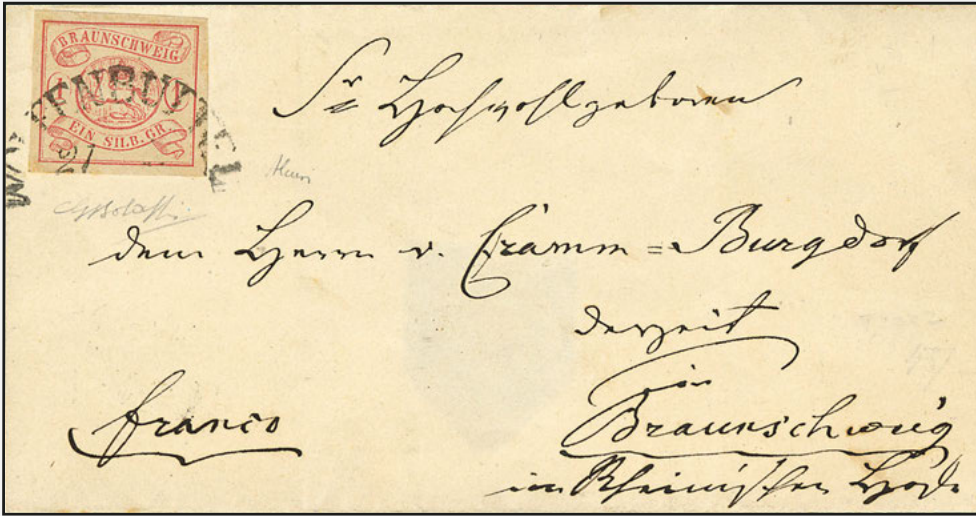 BRAUNSCHWEIG
EIN SILB. GR.
WOLFENBUTTEL
21
Sr Hochwohlgeboren
dem Herrn v. Cramm=Burgdorf
derzeit
in
Braunschweig
franco
im Rheinischen Hofe